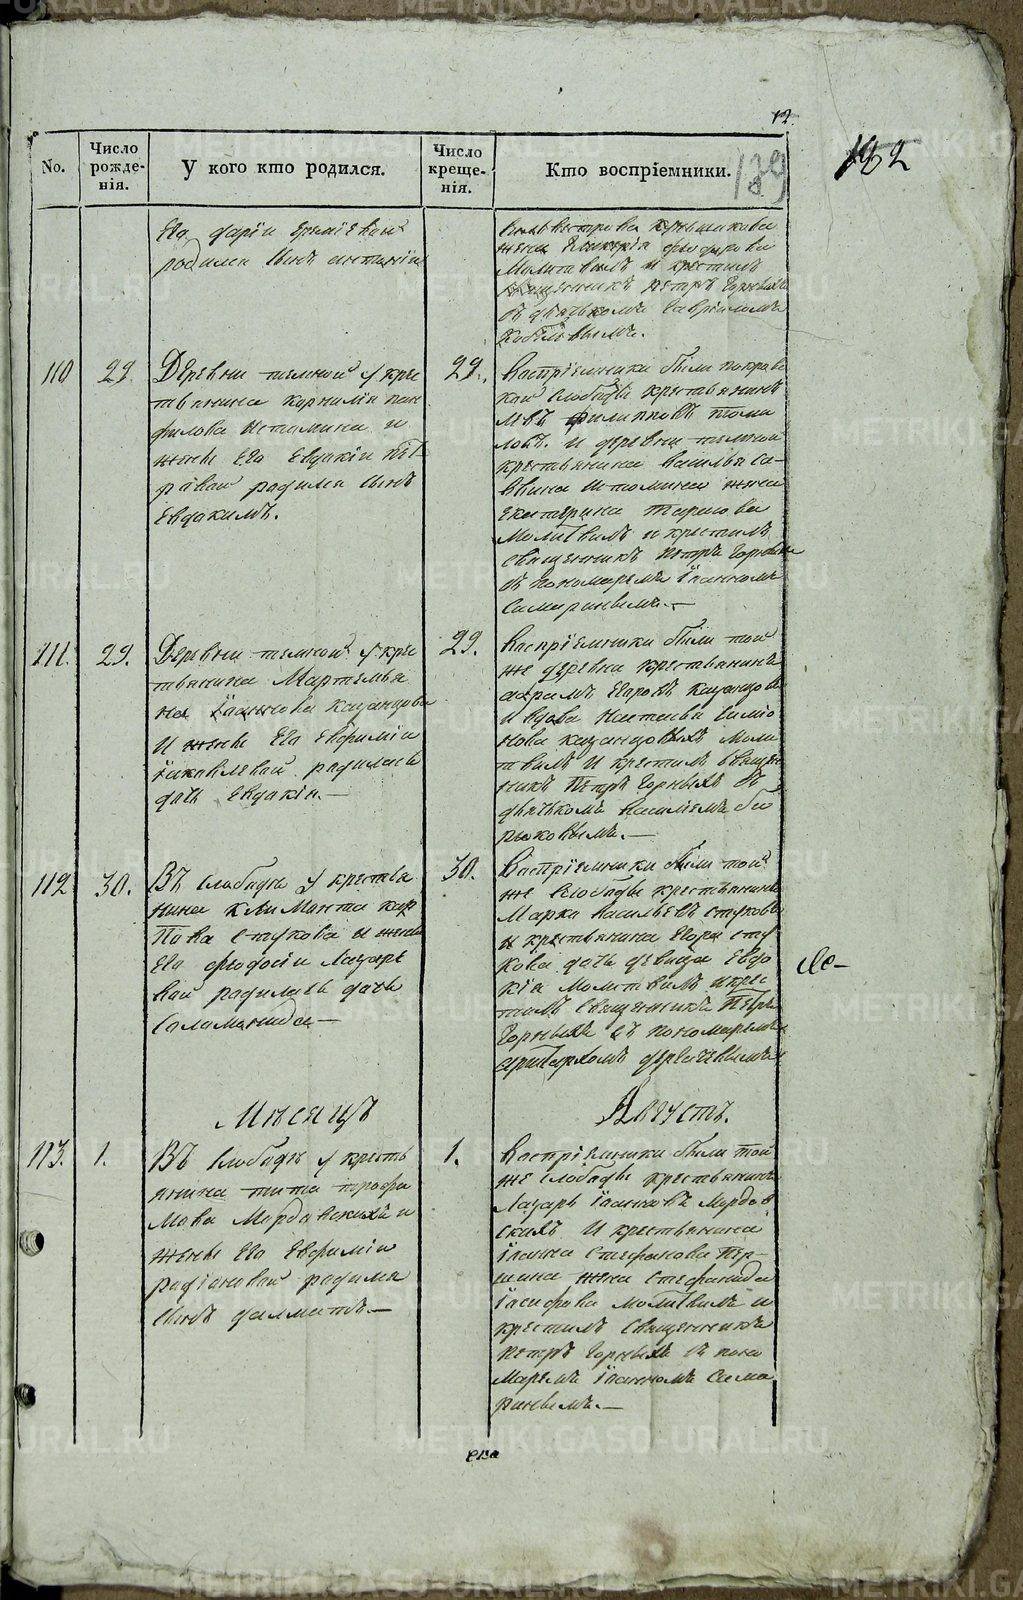 12.
No.
Число рожде-нія.
У кого кто родился.
Число креще-нія.
Кто воспріемники.
139
182
Его даріи
родился сынъ
жена
Молитвилъ и крестилъ
священникъ Петръ Горныхъ
съ дьячкомъ Гавріиломъ
110
29.
Деревни темной у кре
стьянина корнилія пан
филова истомина и
жены его Евдокіи пет
ровой родился сынъ
Евдокимъ.
29.
Воспріемники были покров
кой слободы крестьянинъ
Левъ Филиповъ томи
ловъ. и деревни темной
крестьянина василья са-
ввина истомина жена
екатерина тарасова
молитвилъ и крестилъ
священникъ Петръ Горныхъ
съ пономаремъ іоанномъ
Самаринымъ.—
111.
29.
Деревни темной у кре
стьянина Мартемья
на іоаннова казанцова
и жены Его Евфиміи
іаковлевой родилась
дочь Евдокія.—
29.
Воспріемники были той
же деревни крестьянинъ
Егоровъ казанцовъ
и вдова настасья симіо
нова казанцовыхъ моли
твилъ и крестилъ священ
никъ Петръ Горныхъ съ
дьячкомъ василіемъ би
рюковымъ.—
112
30.
Въ слободе у крестья
нина климонта кар
пова стукова и жены
Его феодосіи Лазаре
вой родилась дочь
Соломонида—
30.
Воспріемники были той
же слободы крестьянинъ
Марка васильевъ стуковъ
и крестьянина Егора сту
кова дочь девица Евдо
кія молитвилъ и крес
тилъ священникъ Петръ
Горныхъ съ пономаремъ
Мѣсяцъ
Августъ.
113.
1.
Въ слободе у кресть
янина тита трофи
мова Мордовскихъ и
жены Его Евфиміи
радіоновой родился
сынъ далматъ.—
1.
Воспріемники были той
же слободы крестьянинъ
Лазарь іоанновъ Мордов
скихъ и крестьянина
іоанна стефанова Пер-
шина жена стефанида
іосифова молитвилъ и
крестилъ священникъ
Петръ Горныхъ съ поно
маремъ іоанномъ Сама
ринымъ.—